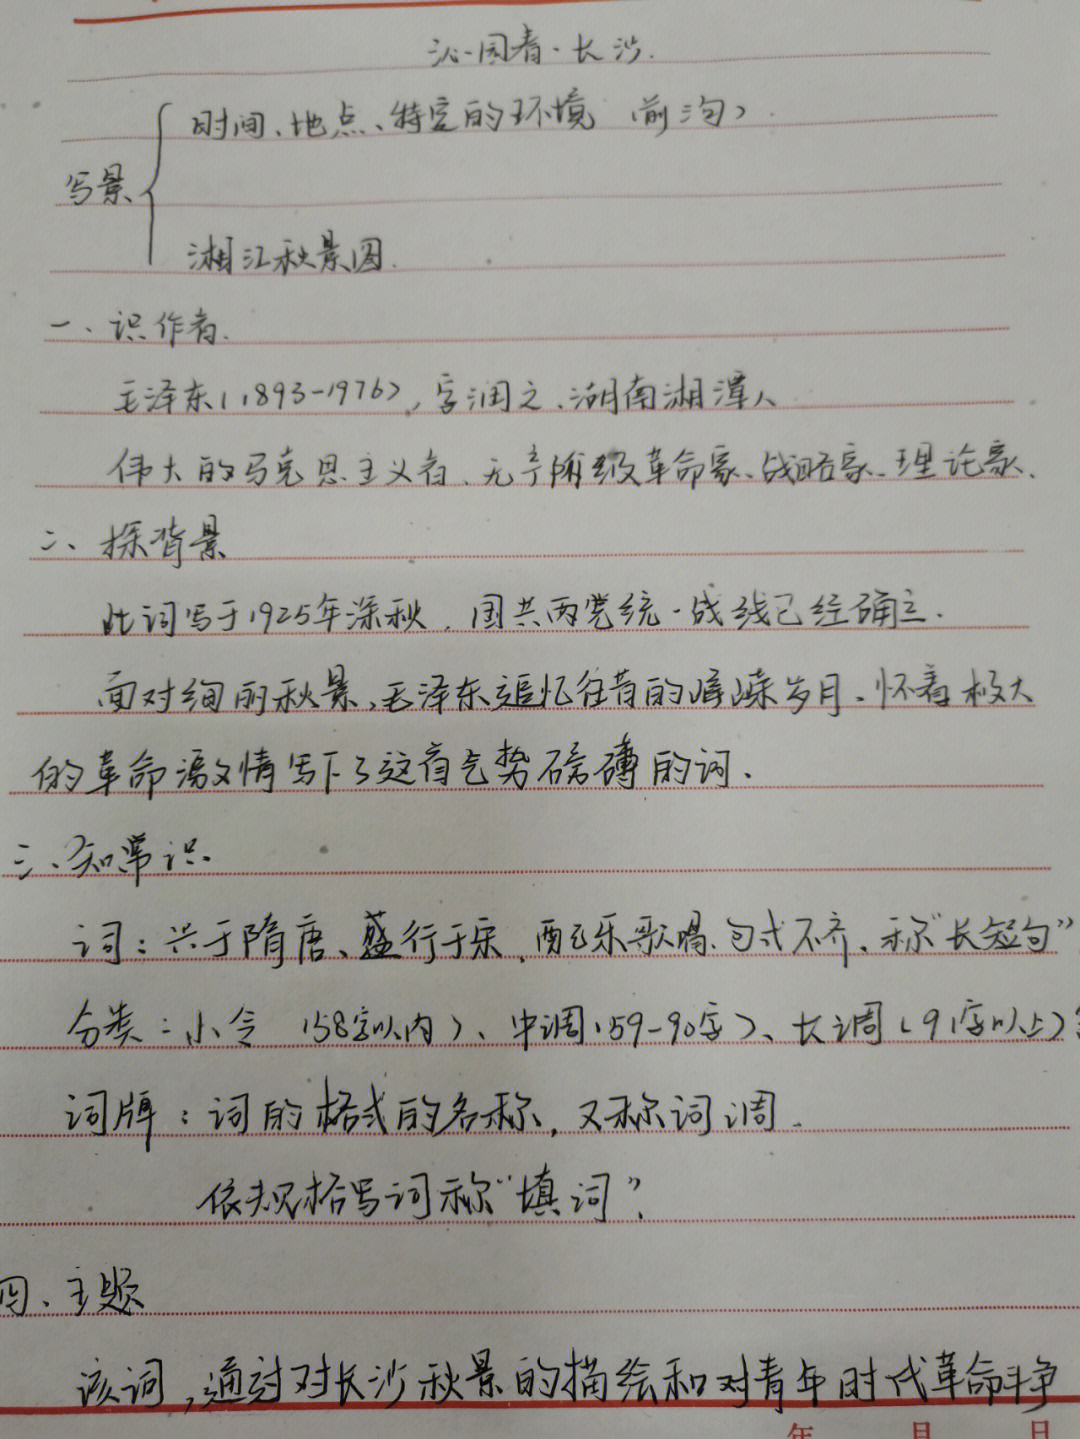 沁园春·长沙.
时间、地点、特定的环境（前三句）.
写景
湘江秋景图.
一、识作者.
毛泽东(1893-1976)，字润之、湖南湘潭人
伟大的马克思主义者、无产阶级革命家、战略家、理论家、
二、探背景
此词写于1925年深秋，国共两党统一战线已经确立.
面对绚丽秋景，毛泽东追忆往昔的峥嵘岁月、怀着极大
的革命激情写下了这首气势磅礴的词.
三、知常识.
词：兴于隋唐、盛行于宋，配乐歌唱、句式不齐、称“长短句”
分类：小令（58字以内）、中调（59-90字）、长调（91字以上）
词牌：词的格式的名称，又称词调.
依规格写词称“填词”.
四、主题
该词，通过对长沙秋景的描绘和对青年时代革命斗争
年 月 日